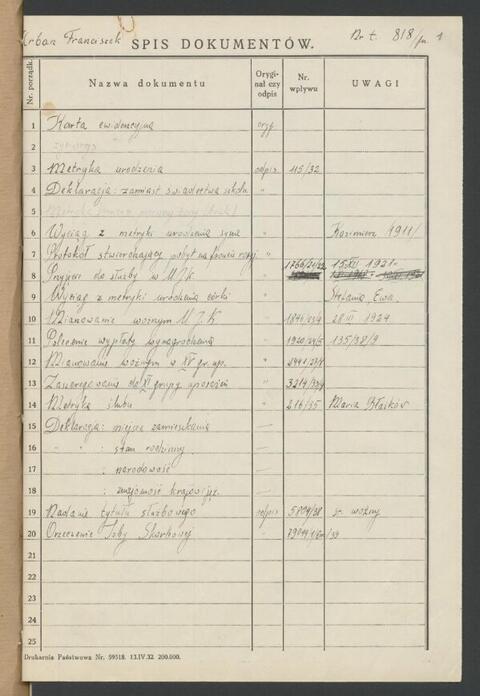 Urban Franciszek
SPIS DOKUMENTÓW.
Nr t. 818/
Nr. porządk.
Nazwa dokumentu
Orygi-
nał czy
odpis
Nr.
wpływu
UWAGI
1 Karta ewidencyjna oryg.
2
3 Metryka urodzenia odpis 115/32
4 Deklaracja: zamiast świadectwa szkoln "
5
6 Wyciąg z metryki urodzenia syna " Kazimierz 1911/
7 Protokół stwierdzający pobyt na froncie "
8 Przyjęcie do służby w M.J.K. " 15.XII 1921.
9 Wyciąg z metryki urodzenia córki " Stefania Ewa.
10 Mianowanie woźnym M.J.K " 28 III 1924
11 Polecenie wypłaty wynagrodzenia " 135/38/9
12 Mianowanie woźnym w XV gr. up. "
13 Zaszeregowanie do XI grupy uposażeń "
14 Metryka ślubu " 216/35 Maria
15 Deklaracja: miejsce zamieszkania —
16 " " : stan rodzinny —
17 : narodowość —
18 : znajomość —
19 Nadanie tytułu służbowego odpis 5804/38 st. woźny
20 Orzeczenie Izby Skarbowej "
21
22
23
24
25
Drukarnia Państwowa Nr. 59518. 13.IV.32. 200.000.